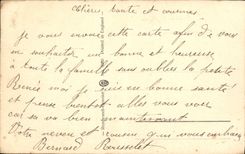 Chère tante et cousines.
je vous envoie cette carte afin de vous
en souhaiter une bonne et heureuse
à toute la famille sans oublier la petite
Renée moi je suis en bonne santé
et pense bientôt allez vous voir
car sa va bien maintenant
Votre neveu et cousin qui vous embrasse
Bernard Rousselet